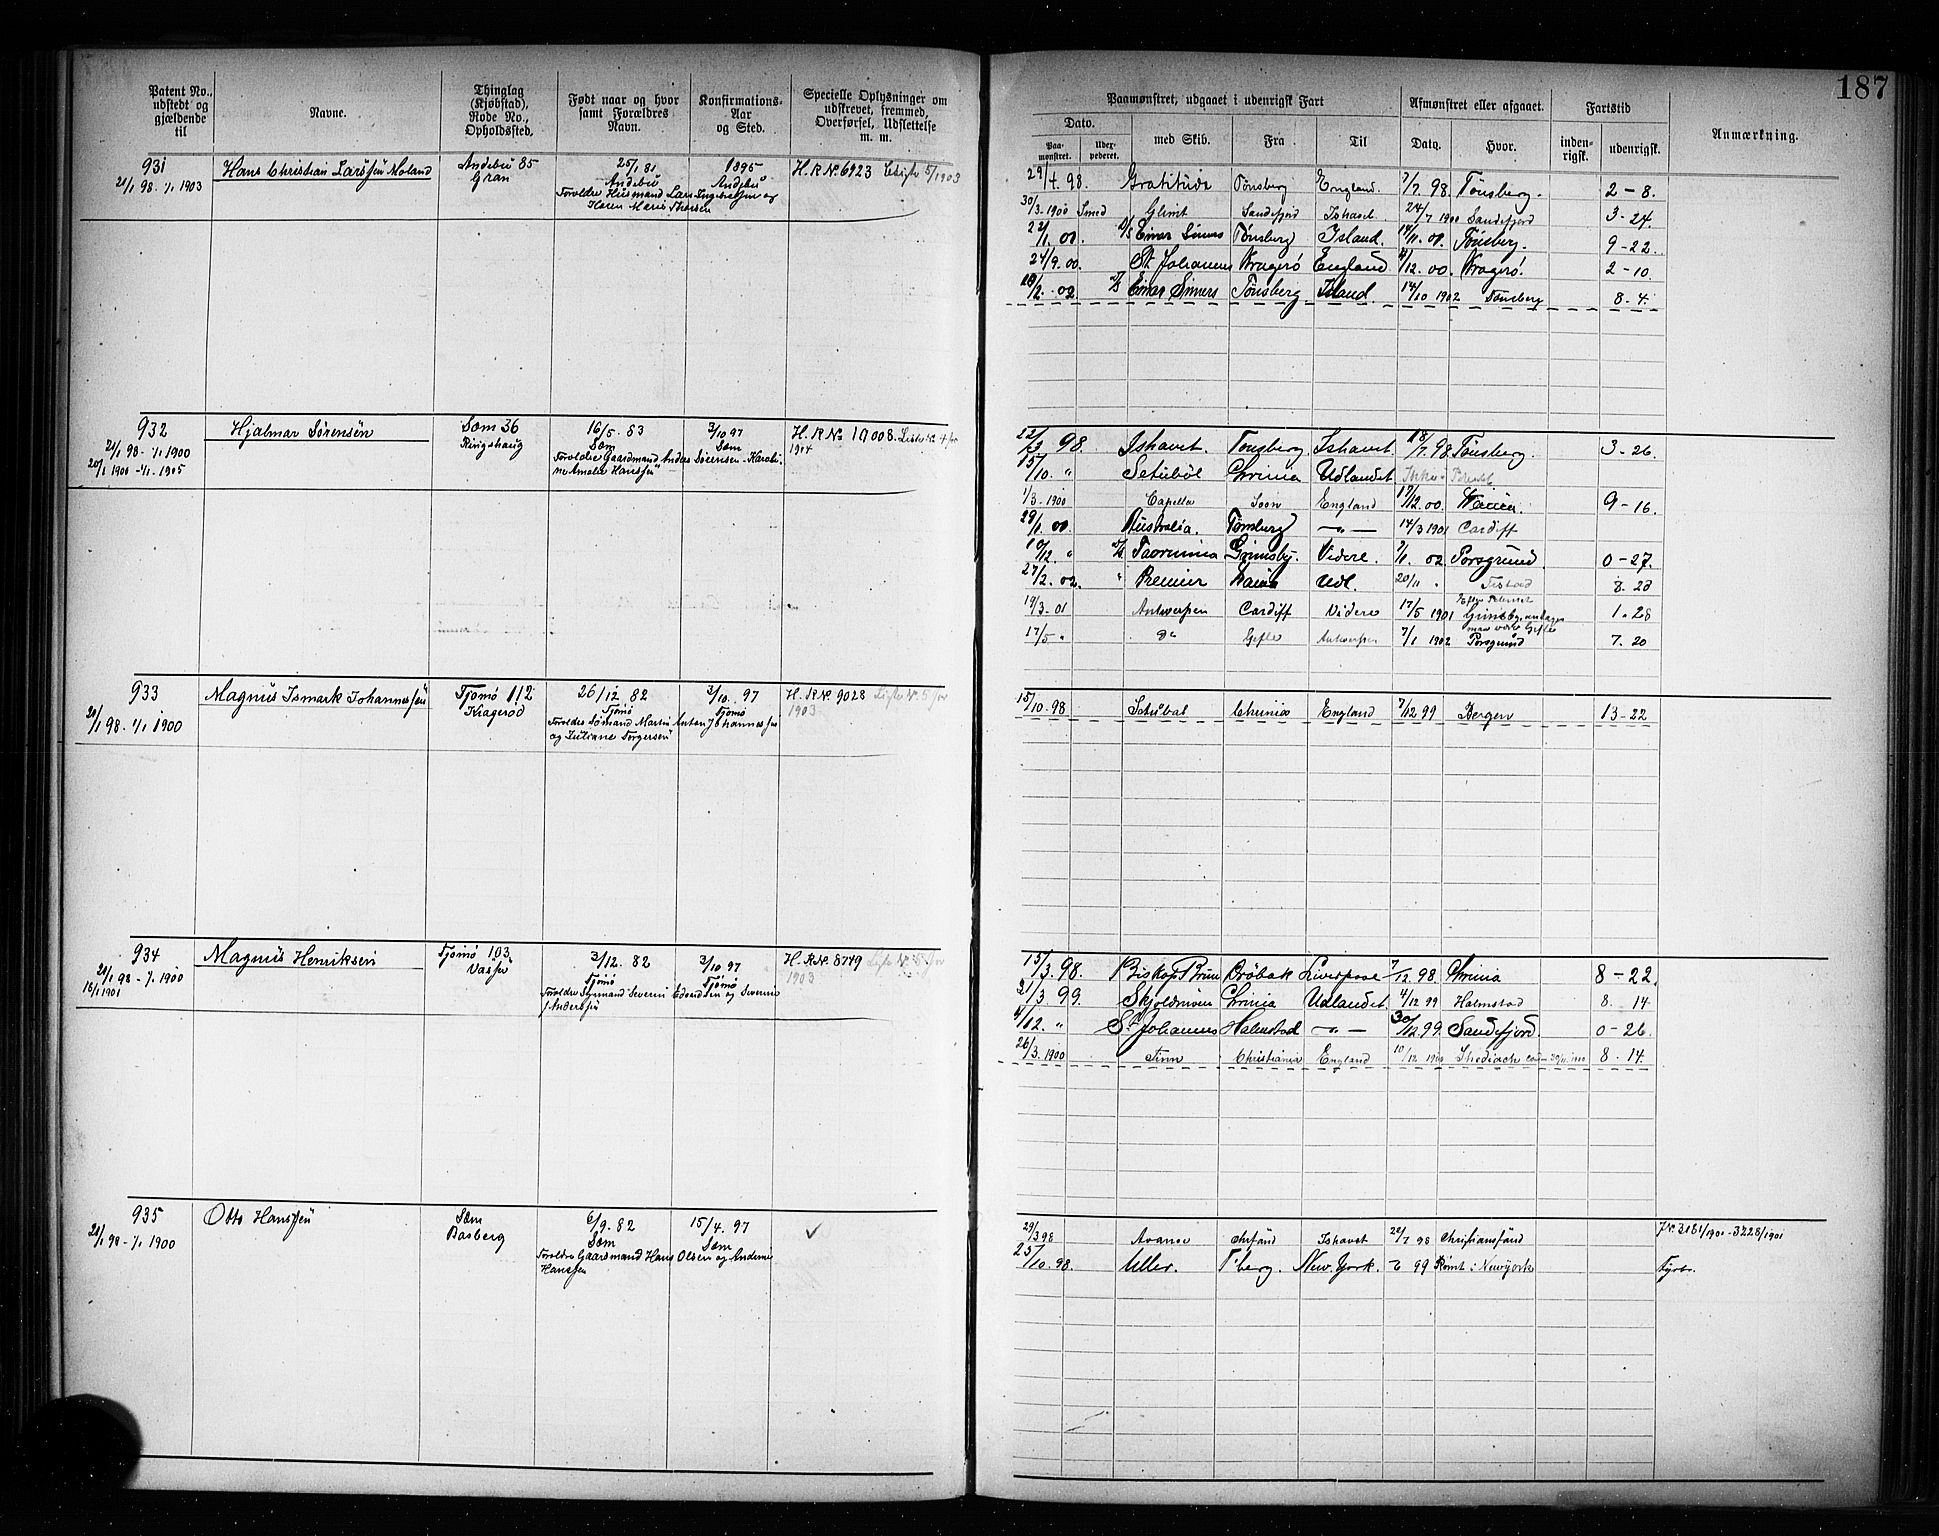 187
Patent No., udstedt og gjældende til
Navne.
Thinglag (Kjøbstad), Rode No., Opholdssted.
Født naar og hvor samt Forældres Navn.
Konfirmations-Aar og Sted.
Specielle Oplysninger om udskrevet, fremmed, Overførsel, Udslettelse m. m.
Paamønstret, udgaaet i udenrigsk Fart
Afmønstret eller afgaaet.
Fartstid
Anmærkning.
Dato.
med Skib.
Fra
Til
Dato.
Hvor.
inden-rigsk.
udenrigsk.
Paa-mønstret.
Udex-pederet.
931
21/1 98 - 1/1 1903
Hans Christian Larssen Moland
Andebu 85
Gran
25/1 81
Andebu
Forældre Husmand Lars Ingebretsen og
Karen Marie Thorsen
1895
Andebu
H.R.No. 6923 Liste 5/1903
29/4. 98. Gratitude Tønsberg England 7/7. 98. Tønsberg. 2-8.
30/3. 1900 Smed Glimt Sandefjord Ishavet 24/7 1900 Sandefjord 3-24.
22/1. 00. Einar Simers Tønsberg Island. 14/11. 00. Tønsberg. 9-22.
24/9. 00. St. Johannes Kragerø England 4/12. 00. Kragerø. 2-10.
10/2. 02 Einar Simers Tønsberg Island. 14/10 1902 Tønsberg 8-4.
932
21/1 98 - 1/1 1900
20/1 1900 - 1/1. 1905
Hjalmar Sørensen
Sem 36
Ringshaug
16/5. 83
Sem
Forældre Gaardmand Anders Sørensen - Karoli-
ne Amalie Hansen
3/10 97
Sem
H. R No 10008. Liste No 4 for
1904
22/3 98. Ishavet. Tønsberg Ishavet 18/7. 98. Tønsberg. 3-26.
15/10. " Setubal Chrinia Udlandet
1/3. 1900 Capella Soon England 17/12. 00. 9-16.
29/1. 00. Australia. Tønsberg — " — 14/3 1901 Cardiff
10/12. " Taormina Grimsby. Videre. 7/1. 02 Porsgrund 0-27.
27/2. 02. " Premier Udl. 20/11 " 8-23
19/3. 01 Antwerpen Cardiff Videre 17/5 1901 Grimsby 1-28
17/5 " Do Gefle Antwerpen 7/1 1902 Porsgrund 7-20
933
21/1 98. - 1/1 1900
Magnus Ismark Johannessen
Tjømø 112
Kragerød
26/12. 82
Tjømø
Forældre Sømand Martin Anton Johannessen
og Juliane Torgersen
3/10. 97
Tjømø
H. R No. 9028 Liste No. 5 for
1903
15/10. 98 Setubal Chrinia England 7/12 99 Bergen 13-22
934
21/1 98 - 1/1. 1900
16/1 1901
Magnus Henriksen
Tjømø 103
Vasser
3/12. 82
Tjømø
Forældre Sømand Severin Edvardsen og Severine
f. Andersen
3/10. 97
Tjømø
H. R No. 8749 Liste No. 5 for
1903
15/3. 98. Biskop Brun Drøbak Liverpool 7/12 98. Chrinia 8-22.
21/3 99. Skjoldmøen Chrinia Udlandet. 4/12 99 Halmstad 8. 14
4/12. " St. Johannes Halmstad — " — 30/12 99. Sandefjord. 0-26.
26/3. 1900 Finn Christiania England 10/12 1900 Shediach 8-14.
935
21/1 98 - 1/1 1900
Otto Hanssen
Sem
Basberg
6/9. 82
Sem
Forældre Gaardmand Hans Olsen og Andrine
Hanssen
15/4. 97
Sem
✓
29/3 98 Avance Chrsand Ishavet 22/7 98 Christiansand J.No. 3161/1901 - 3228/1901
25/10. 98. Uller. T'berg. New York. 99 Rømt i New york Fyrbr.